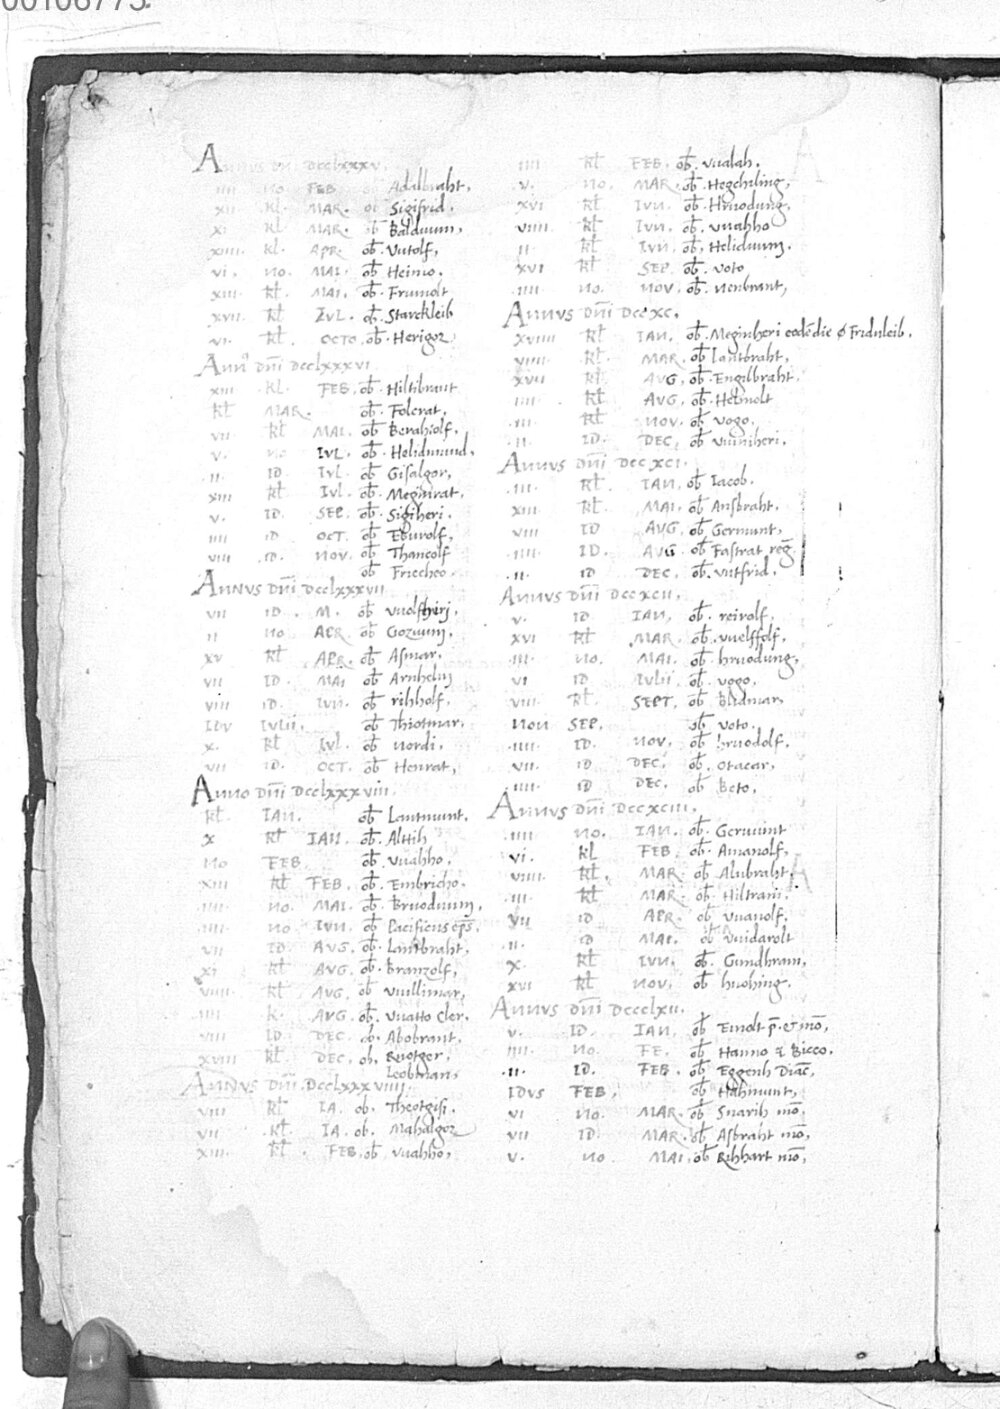 00106773
Annus dni DCClxxxv.
iiii no FEB ob Adalbraht,
xii kl MAR. ob Sigifrid.
xi kl MAR. ob Balduum,
xiiii. kl. APR. ob. Vutolf,
vi, no. MAI. ob Heimo.
xiii. kl. MAI. ob. Frumolt
xvii. kl IVL. ob. Starckleib
vi. kl. OCTO. ob. Herigoz
Ann dni DCClxxxvi
xiii kl. FEB. ob. Hiltibrant
kl MAR. ob. Folcrat,
vii kl MAI. ob Berahtolf,
v. no IVL. ob. Helidmund,
ii ID IVL ob Gisalgoz,
xiii kl IVL. ob. Meginrat,
v. ID. SEP. ob. Sigiheri.
iiii ID OCT. ob Eburolf,
viii ID. NOV. ob Thancolf
ob Friecheo.
ANNVS dni DCClxxxvii
vii ID. M. ob Vuolfheri,
ii no APR. ob Gozuum,
xv kl APR. ob Asmar,
vii ID. MAI ob Arnhelm
viii ID. IVN. ob rihholf,
Idv IVLII, ob Thiotmar,
x. kl IVL. ob nordi,
vii ID. OCT. ob Henrat,
Anno dni DCClxxxviii.
kl. IAN. ob Lantmunt.
x kl IAN. ob. Altih
no FEB, ob. vuahho,
xiii kl FEB. ob. Embricho.
iiii no. MAI. ob Bruoduuin,
iiii. no IVN. ob Pacificus eps.
vii ID. AVG. ob. Lantbraht,
xi kl AVG. ob. Branzolf,
viiii. kl AVG, ob Vuillimar,
iiii k. AVG. ob. Vuatto Cler.
viii ID DEC. ob. Abobrant,
xviii kl. DEC. ob. Ruotger,
Leobman,
ANNVS dni. DCClxxxviiii.
viii kl IA. ob. Theotgisi.
vii kl. IA. ob. Mahalgoz
xiii. kl. FEB. ob. vuahho,
iiii kl FEB. ob. vualah.
v. no. MAR. ob. Hegchiling,
xvi kl IVN. ob. Hruodung.
viiii kl IVN. ob. vuahho
ii kl IVN. ob. Heliduum.
xvi kl SEP. ob. voto
iiii no. NOV. ob. nenbrant,
Annvs dni DCCXC.
xviiii kl IAN, ob. Meginheri eode die ø Friduleib.
viiii kl. MAR. ob Lantbraht,
xvii kl AVG, ob. Engilbraht.
iiii kl AVG, ob. Helmolt
iii. kl NOV. ob vogo,
ii. ID. DEC, ob Vuiniheri.
ANNVS dni DECXCI.
iii. kl. IAN, ob Iacob.
xiii kl. MAI. ob Ansbraht.
viii ID AVG ob Germunt,
iiii. ID. AVG. ob Fastrat reg.
ii. ID DEC, ob. vutfrid.
ANNVS dni DCCXCII,
v. ID IAN, ob. reirolf,
xvi kl MAR. ob. vuelffolf,
iii. no. MAI. ob. hruodung,
vi ID IVLII ob. vogo,
viii kl. SEPT, ob Blidmar,
NON SEP. ob voto.
iiii. ID. NOV. ob hruodolf.
vii. ID DEC, ob. Otacar,
iiii. ID DEC, ob Beto,
ANNVS dni DCCXCIII,
iiii no. IAN. ob. Geruuint
vi. kl FEB ob. Amanolf,
viiii kl, MAR. ob Alubraht,
iii kl MAR. ob Hiltram.
vii ID APR. ob vuanolf,
ii. ID MAI. ob Vuidarolt
x. kl IVN. ob. Gundhram,
xvi kl NOV, ob huohing.
ANNVS dni DCCClXII.
v. ID. IAN, ob Emolt pr. & mo,
iiii no. FE, ob Hanno & Bicco.
ii. ID. FEB. ob Eggenh Diac,
IDVS FEB, ob Hahmunt,
vi no. MAR. ob Snarih mo,
vii ID. MAR. ob Asbraht mo,
v. no MAI, ob Rihhart mo,